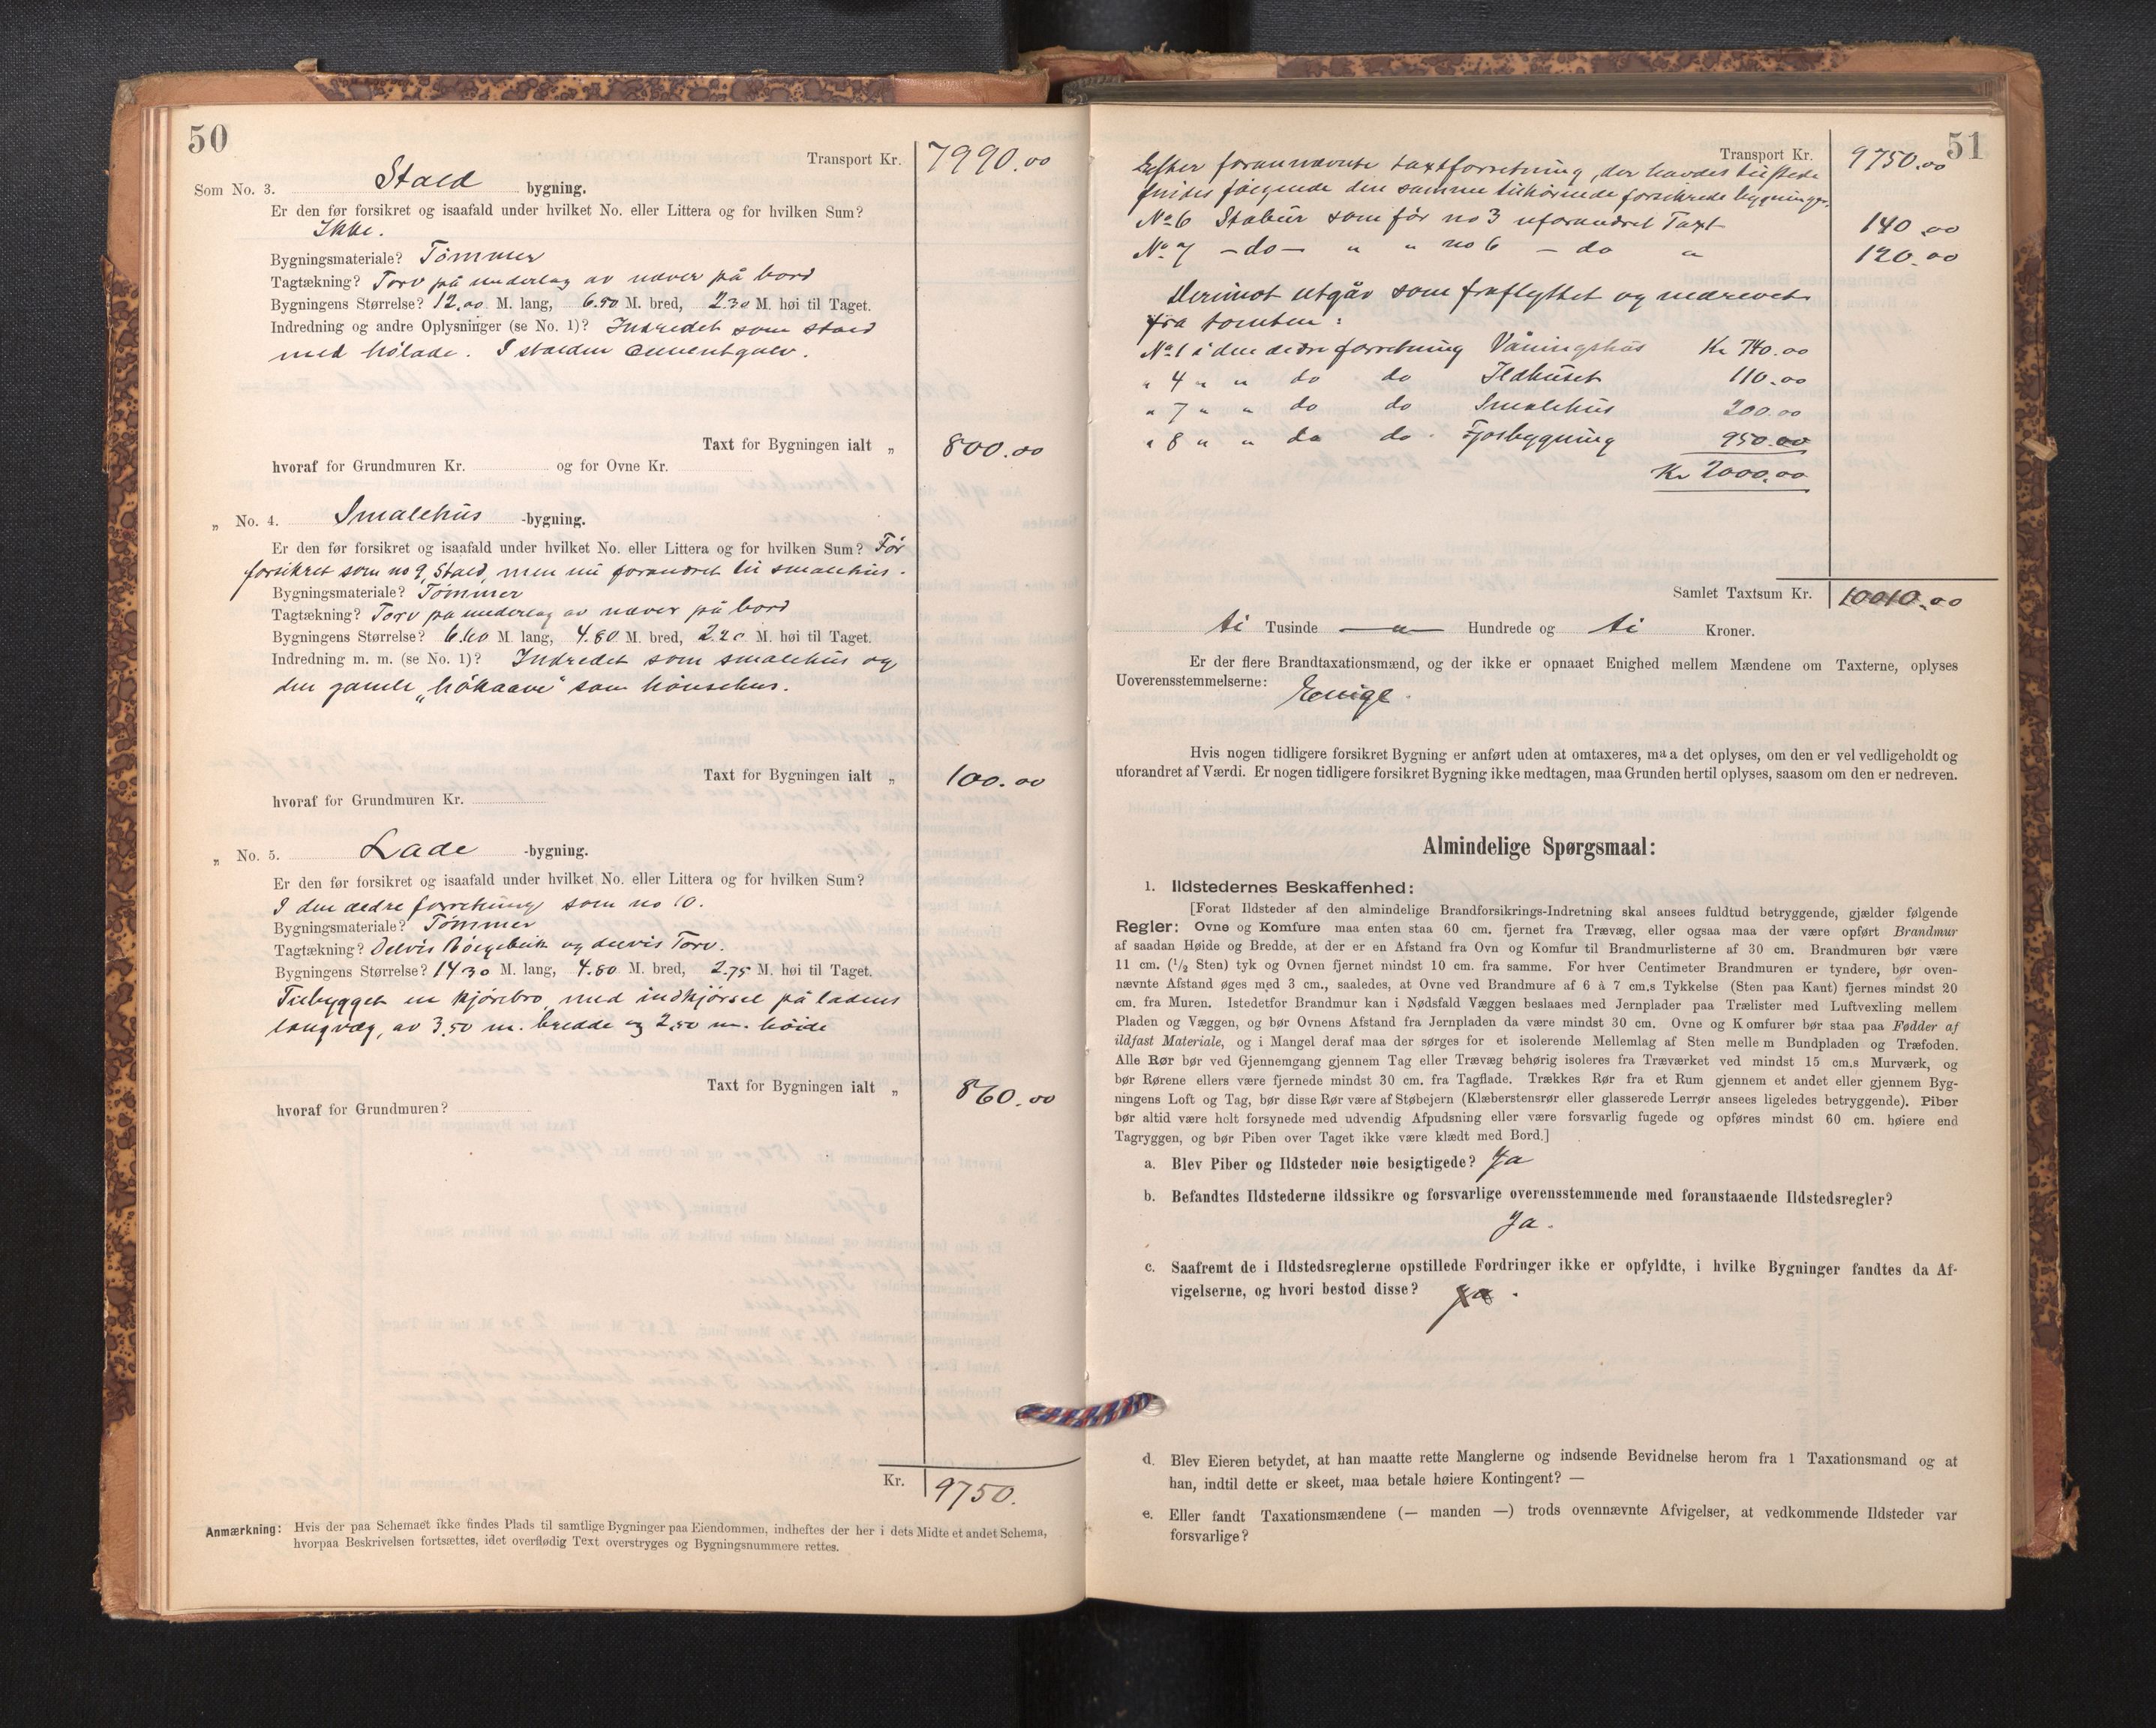 50
Transport Kr. 7990.00
Som No. 3. Stald bygning.
Er den før forsikret og isaafald under hvilket No. eller Littera og for hvilken Sum?
Ikke.
Bygningsmateriale? Tømmer
Tagtækning? Torv på underlag av næver på bord
Bygningens Størrelse? 12.00 M. lang, 6.90 M. bred, 2.30 M. høi til Taget.
Indredning og andre Oplysninger (se No. 1)? Indredet som stald
med hølade. I stalden cementgulv.
Taxt for Bygningen ialt „ 800.00
hvoraf for Grundmuren Kr. og for Ovne Kr.
„ No. 4. Smalehus -bygning.
Er den før forsikret og isaafald under hvilket No. eller Littera og for hvilken Sum? Før
forsikret som no 9, Stald, men nu forandret til smalehus.
Bygningsmateriale? Tømmer
Tagtækning? Torv på underlag av næver på bord
Bygningens Størrelse? 6.60 M. lang, 4.80 M. bred, 2.20 M. høi til Taget.
Indredning m. m. (se No. 1)? Indredet som smalehus og
den gamle „hökaave“ som hönsehus.
Taxt for Bygningen ialt „ 100.00
hvoraf for Grundmuren Kr.
„ No. 5. Lade -bygning.
Er den før forsikret og isaafald under hvilket No. eller Littera og for hvilken Sum?
I den ældre forretning som no 10.
Bygningsmateriale? Tømmer
Tagtækning? Delvis Bölgeblik og delvis Torv.
Bygningens Størrelse? 14.30 M. lang, 4.80 M. bred, 2.75 M. høi til Taget.
Tilbygget en kjörebro, med indkjörsel på ladens
langvæg, av 3.50 m. bredde og 2.50 m. höide
Taxt for Bygningen ialt „ 860.00
hvoraf for Grundmuren?
Kr. 9750.
Anmærkning: Hvis der paa Schemaet ikke findes Plads til samtlige Bygninger paa Eiendommen, indheftes der her i dets Midte et andet Schema,
hvorpaa Beskrivelsen fortsættes, idet overflødig Text overstryges og Bygningsnummere rettes.
51
Transport Kr. 9750.00
Efter forannævnte taxtforretning, der havdes tilstede
findes følgende den samme tilhörende forsikrede bygninger.
No 6 Stabur som før no 3 uforandret Taxt 140.00
No 7 -do- „ „ no 6 - do „ 120.00
Derimot utgår som fraflyttet og nedrevet
fra tomten:
No 1 i den ældre forretning Våningshus Kr 740.00
„ 4 „ „ do do Ildhuset 110.00
„ 7 „ „ do do Smalehus 200.00
„ 8 „ „ do do. Fjosbygning 950.00
Kr 2000.00
Samlet Taxtsum Kr. 10010.00
ti Tusinde — „ — Hundrede og ti Kroner.
Er der flere Brandtaxationsmænd, og der ikke er opnaaet Enighed mellem Mændene om Taxterne, oplyses
Uoverensstemmelserne: Enige.
Hvis nogen tidligere forsikret Bygning er anført uden at omtaxeres, maa det oplyses, om den er vel vedligeholdt og
uforandret af Værdi. Er nogen tidligere forsikret Bygning ikke medtagen, maa Grunden hertil oplyses, saasom om den er nedreven.
Almindelige Spørgsmaal:
1. Ildstedernes Beskaffenhed:
[Forat Ildsteder af den almindelige Brandforsikrings-Indretning skal ansees fuldtud betryggende, gjælder følgende
Regler: Ovne og Komfure maa enten staa 60 cm. fjernet fra Trævæg, eller ogsaa maa der være opført Brandmur
af saadan Høide og Bredde, at der er en Afstand fra Ovn og Komfur til Brandmurlisterne af 30 cm. Brandmuren bør være
11 cm. (1/2 Sten) tyk og Ovnen fjernet mindst 10 cm. fra samme. For hver Centimeter Brandmuren er tyndere, bør oven-
nævnte Afstand øges med 3 cm., saaledes, at Ovne ved Brandmure af 6 à 7 cm.s Tykkelse (Sten paa Kant) fjernes mindst 20
cm. fra Muren. Istedetfor Brandmur kan i Nødsfald Væggen beslaaes med Jernplader paa Trælister med Luftvexling mellem
Pladen og Væggen, og bør Ovnens Afstand fra Jernpladen da være mindst 30 cm. Ovne og Komfurer bør staa paa Fødder af
ildfast Materiale, og i Mangel deraf maa der sørges for et isolerende Mellemlag af Sten mellem Bundpladen og Træfoden.
Alle Rør bør ved Gjennemgang gjennem Tag eller Trævæg behørig isoleres fra Træværket ved mindst 15 cm.s Murværk, og
bør Rørene ellers være fjernede mindst 30 cm. fra Tagflade. Trækkes Rør fra et Rum gjennem et andet eller gjennem Byg-
ningens Loft og Tag, bør disse Rør være af Støbejern (Klæberstensrør eller glasserede Lerrør ansees ligeledes betryggende). Piber
bør altid være helt forsynede med udvendig Afpudsning eller være forsvarlig fugede og opføres mindst 60 cm. høiere end
Tagryggen, og bør Piben over Taget ikke være klædt med Bord.]
a. Blev Piber og Ildsteder nøie besigtigede? Ja
b. Befandtes Ildstederne ildssikre og forsvarlige overensstemmende med foranstaaende Ildstedsregler?
Ja.
c. Saafremt de i Ildstedsreglerne opstillede Fordringer ikke er opfyldte, i hvilke Bygninger fandtes da Af-
vigelserne, og hvori bestod disse? Ja.
d. Blev Eieren betydet, at han maatte rette Manglerne og indsende Bevidnelse herom fra 1 Taxationsmand og at
han, indtil dette er skeet, maa betale høiere Kontingent? —
e. Eller fandt Taxationsmændene (— manden —) trods ovennævnte Afvigelser, at vedkommende Ildsteder var
forsvarlige?